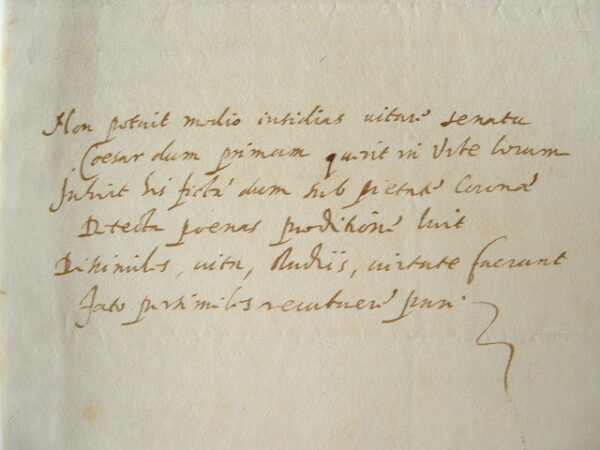 Non potuit medio insidias uitare senatu
Caesar dum primum querit in Vrbe locum
his ficta dum sub pietate Coronae
Detecta poenas proditione luit
Dissimiles, uita, studiis, uirtute fuerunt
Fato persimiles pari